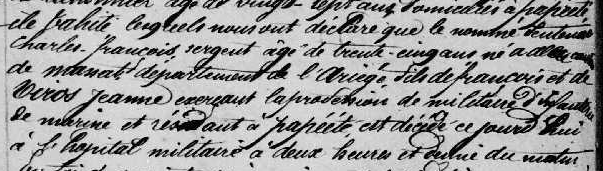 âgé de vingt sept ans domiciliés à papéété
île tahiti lesquels nous ont déclaré que le nommé
Charles françois, sergent âgé de trente cinq ans né à
de département de l'Ariége fils de françois et de
Viros Jeanne exerçant la profession de militaire d'infanterie
de marine et résidant à papéete est décédé ce jourd'hui
à l'hôpital militaire à deux heures et demie du matin